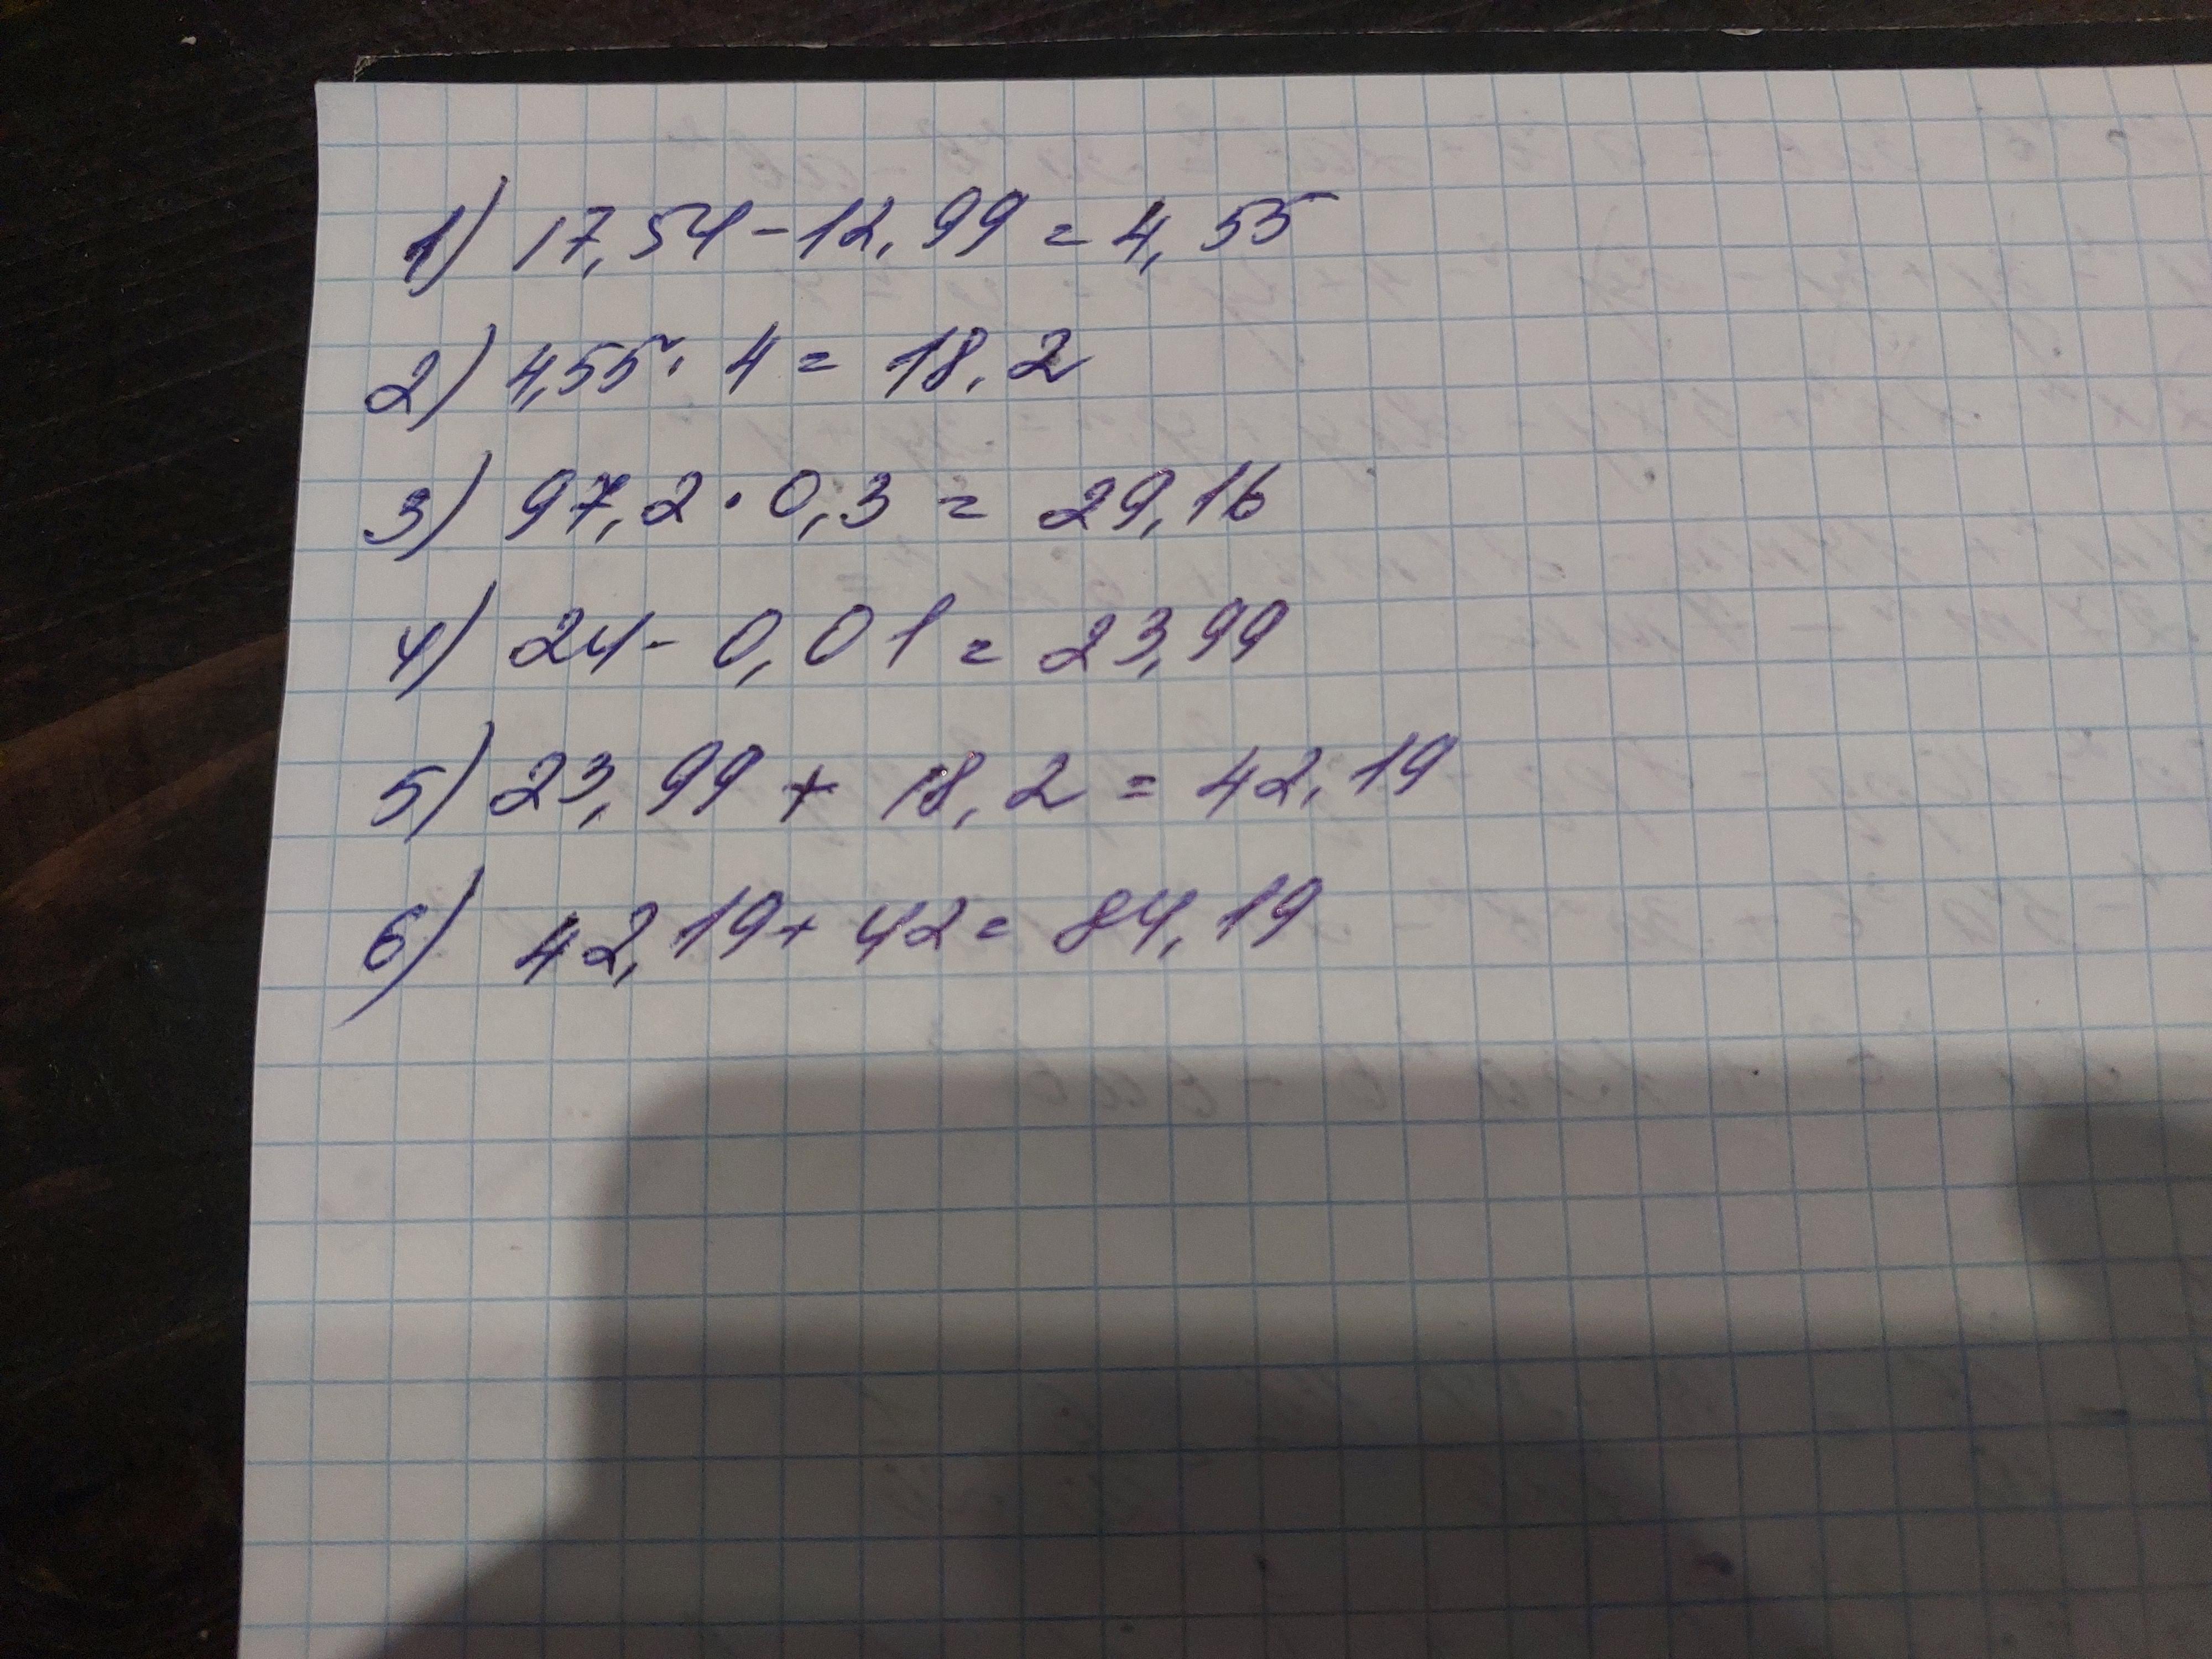 1) 17,54 - 12,99 = 4,55
2) 4,55 · 4 = 18,2
3) 97,2 · 0,3 = 29,16
4) 24 - 0,01 = 23,99
5) 23,99 + 18,2 = 42,19
6) 42,19 + 42 = 84,19